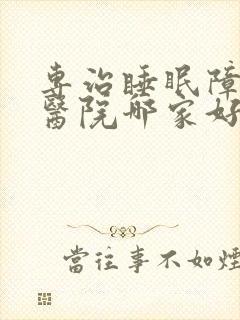 專治睡眠障
醫院哪家好
當往事不如煙